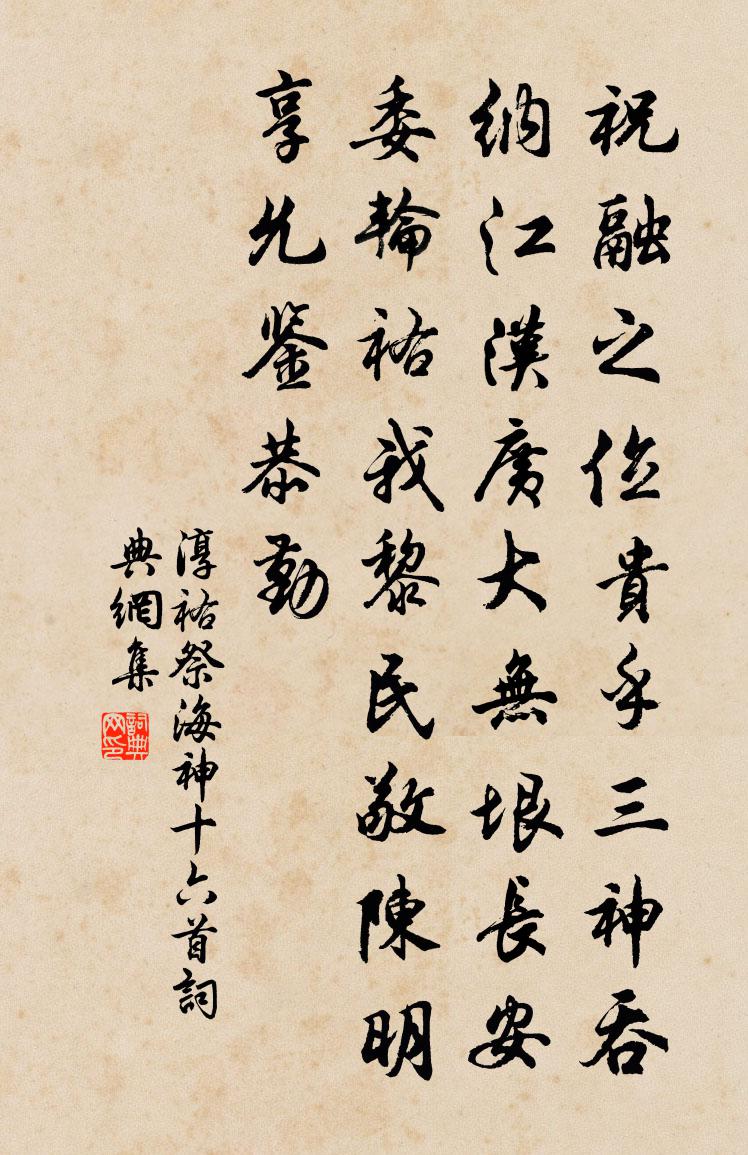 祝融之位貴乎三神吞
納江漢廣大無垠長安
委輪祐我黎民敬陳明
享允鑒恭勤
淳祐祭海神十六首詞
典網集
詞典
网印